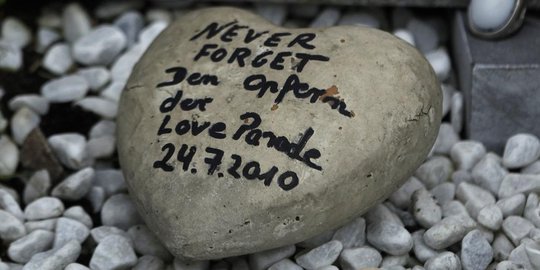 NEVER
FORGET
Den Opfern
der
Love Parade
24.7.2010